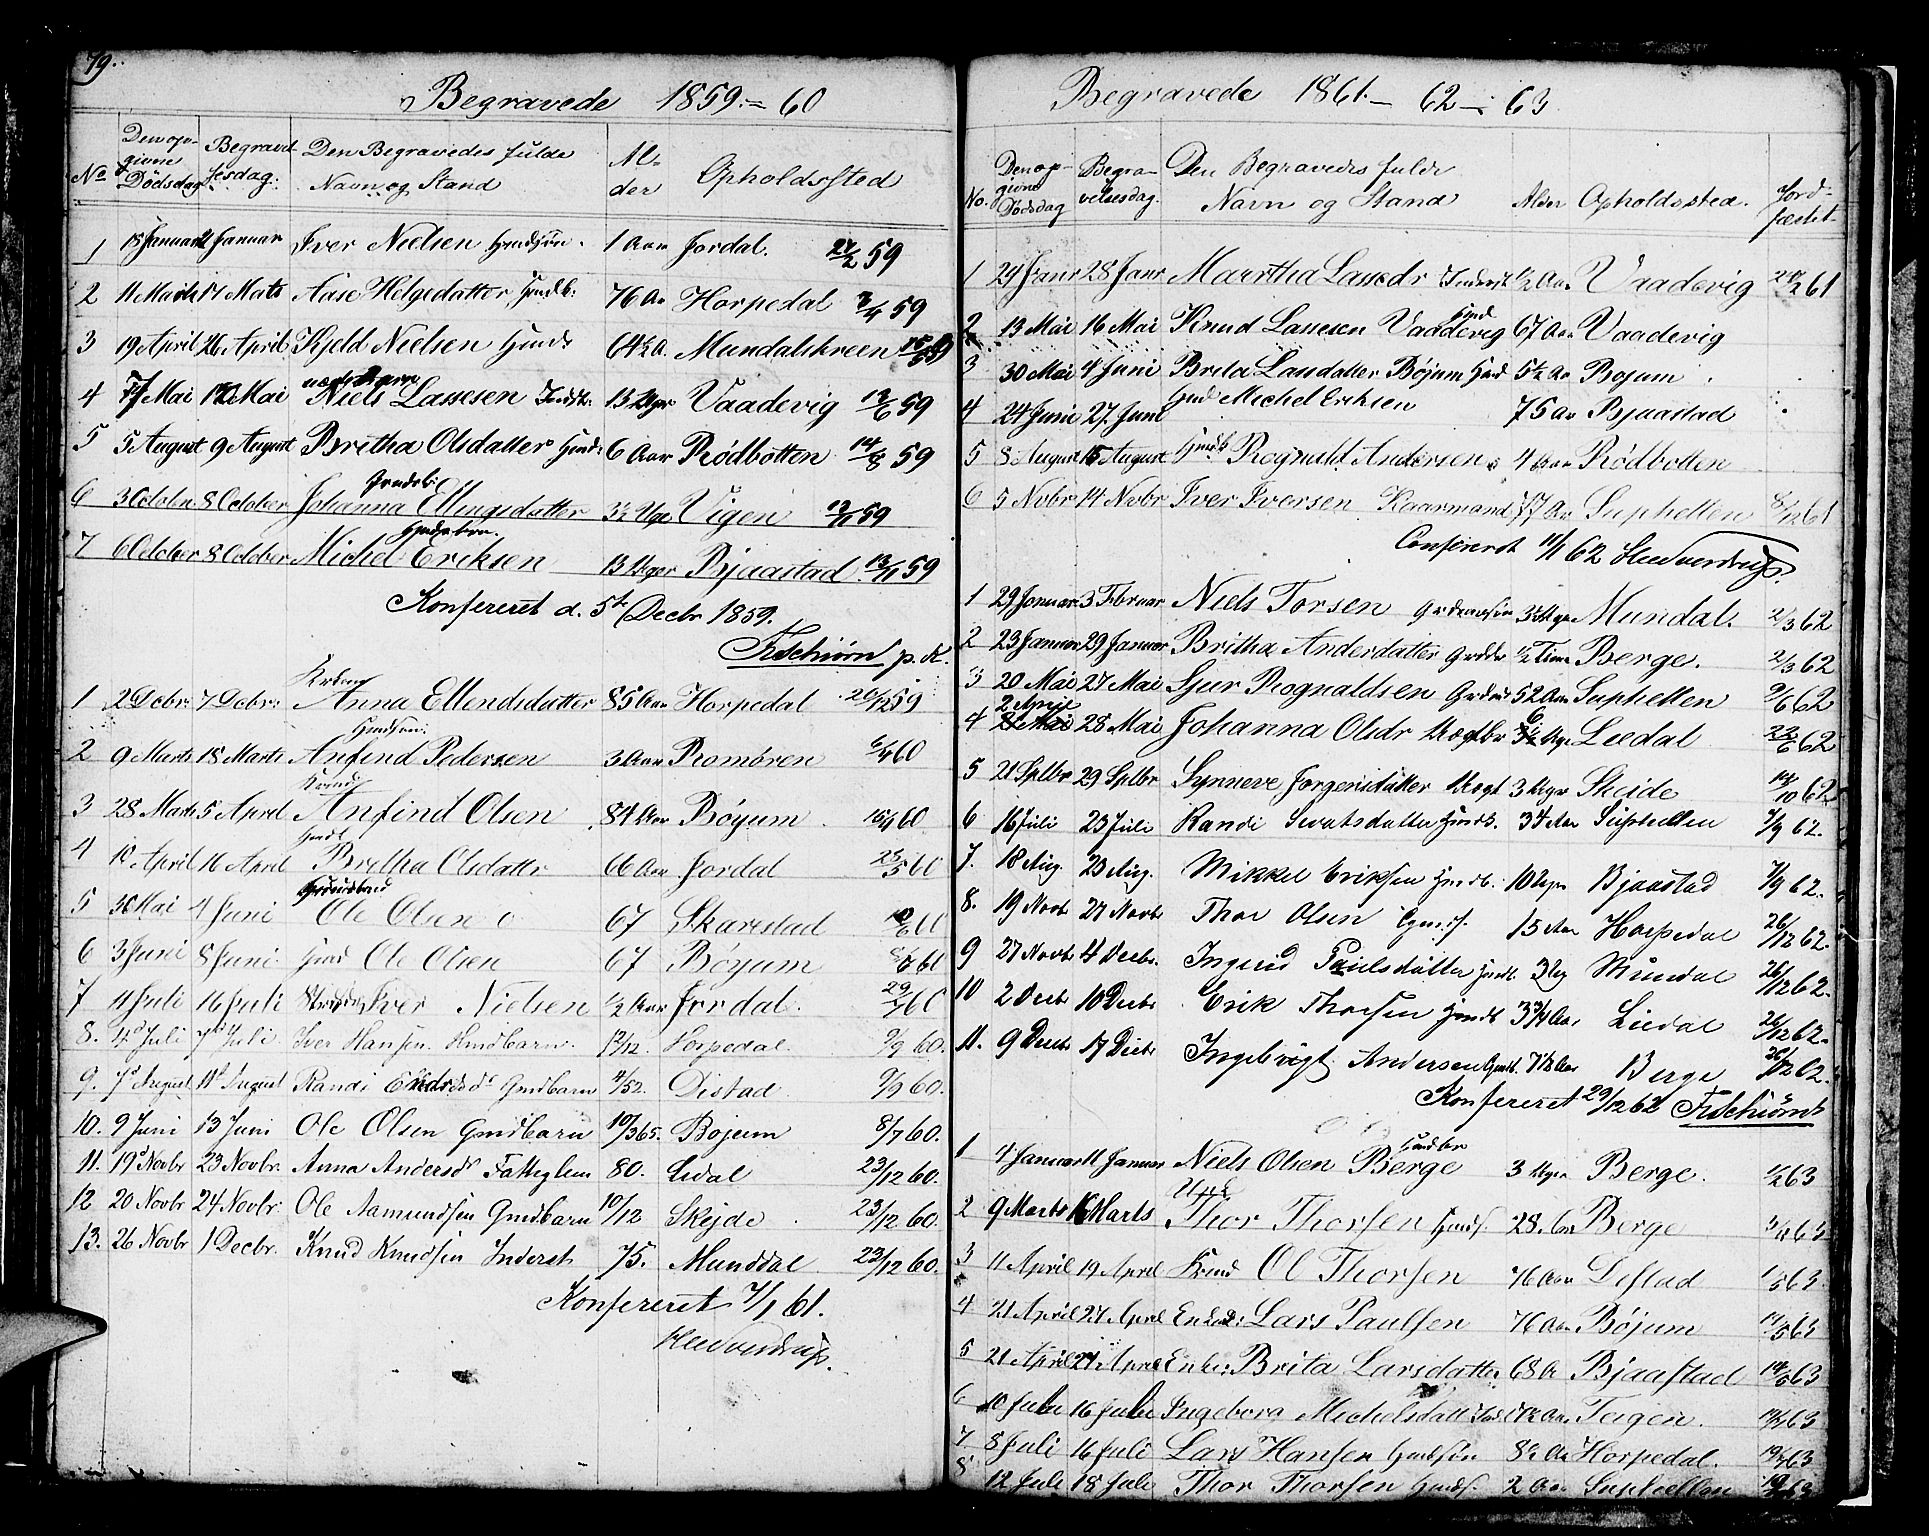 79.
Begravede 1859 = 60
No Den opgivne Dödsdag Begravelsesdag: Den Begravedes fulde Navn og Stand Alder Opholdssted
1 15 Januar 21 Januar Iver Nielsen Huusbøn. 1 Aar Jordal. 27/2 59
2 11 Marts 17 Marts Aase Helgedatter Huusb: 76 Aar Horpedal 3/4 59
3 19 April 26 April Kjeld Nielsen Huusb 64½ A. Mundalskreen
4 17 Mai Mai Niels Lassesen Inds: 13 Uger Vaadevig 12/6 59
5 5 August 9 August Bretha Olsdatter 6 Aar Rödbotten 14/8 59
6 3 October 8 October Johanna Ellingsdatter 3½ Uge Vigen 13/11 59
7 6 October 8 October Michel Eriksen 13 Uger Bjaastad 13/11 59
Konfereret d. 5te Decbr 1859.
FrSchiörn p. k.
1 2 Dcbr: 7 Dcbr: Anna Ellendsdatter 85 Aar Horpedal 20/12 59
2 9 Marts 18 Marts Anfind Pedersen 3 Aar Romören 6/4 60
3 28 Marts 5 April Anfind Olsen 84 Aar Böyum 15/4 60
4 10 April 16 April Bretha Olsdattr 66 Aar Jordal 23/5 60
5 30 Mai 4 Juni Ole Olsen 67 Skarestad 60
6 3 Juni 8 Juni Ole Olsen 67 Böyum 60
7 11 Juli 16 Juli Iver Nielsen ½ Aar Jordal. 29/7 60
8. 4d Juli 7d Juli. Iver Hansen. Huusbarn. 13/12. Horpedal. 9/9 60.
9. 7d August 11d August Randi Gmdbarn 4/52. Distad 9/9 60.
10. 9 Juni 13 Juni Ole Olsen Gmdbarn 10/365. Bojum 8/7 60.
11. 19d Novbr 23 Novbr. Anna Andersdr Fattiglem 80. Lidal 23/12 60.
12 20 Novbr 24 Novbr. Ole Aamundsen Gmdbarn 10/12 Skejde 23/12 60.
13. 26 Novbr 1 Decbr. Knud Knudsen Inderst 75. Munddal 23/12 60.
Konfereret 7/1 61.
Begravede 1861 – 62 – 63
No. Den opgivne Dødsdag Begravelsesdag. Den Begravedes fulde Navn og Stand Alder Opholdssted. Jordfæstet
1 24 Janr 28 Janr Martha Lassedr ½ Aar Vaadevig 24/2 61
2 13 Mai 16 Mai Knud Lassesen Vaadevig 67 Aar Vaadevig
3 30 Mai 4 Juni Brita Larsdatter Böjum 5½ Aar Bojum
4 24 Juni 27 Juni Michel Eriksen 75 Aar Bjaastad
5 8 August 15 August Rognald Andersen 4 Aar Rödbotten
6 5 Novbr 14 Novbr Iver Iversen Kaarmand 77 Aar Suphellen 8/12 61
Confereret 11/1 62
1 29 Januar 3 Februar Niels Torsen 3½ Uger Mundal. 2/3 62
2 23 Januar 29 Januar Britha Andersdatter ½ Time Berge. 2/3 62
3 20 Mai 27 Mai Sjur Rognaldsen 52 Aar Suphellen 9/6 62
4 2 April 28 Mai Johanna Olsdr 6 Uger Leedal 22/6 62
5 21 Sptbr 29 Sptbr Synneve Jorgensdatter 3 Uger Skeide 12/10 62
6 16 Juli 23 Juli Randi 34 Aar Suphellen 7/9 62.
7. 18 Aug. 23 Aug. Mikkel Eriksen 10 Uger Bjaastad 7/9 62.
8. 19 Novb 27 Novbr Thor Olsen 15 Aar Horpedal 26/12 62.
9 27 Novbr 4 Decbr. Ingerid Poulsdatter 3 Uger Mundal 26/12 62.
10 2 Decbr 10 Decbr Erik Thorsen 3¾ Aar Liedal 26/12 62.
11. 9 Decbr 17 Decbr Ingebrigt Andersen 7½ Aar Berge 26/12 62.
Konfereret 29/12 62 FrSchiörn
1 4 Januar 11 Januar Niels Olsen Berge 3 Uger Berge. 1/2 63
2 9 Marts 16 Marts Thor Thorsen 28. Aar Berge 63
3 11 April 19 April Ol Thorsen 76 Aar Distad 1/5 63.
4 21 April 27 April Lars Paulsen 76 Aar Böjum 17/5 63
5 21 April 27 April Enke: Brita Larsdatter 68 A Bjaastad 14/5 63
6 10 Juli 16 Juli Ingebora Michelsdatt Aar Teigen. 63
7 8 Juli 16 Juli Lars Hansen Huusbön 8½ Aar Horpedal. 19/7 63
8 12 Juli 18 Juli Thor Thorsen 2 Aar Suphellen 63